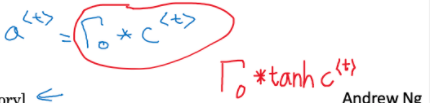 a<t> = Γo * c<t>
Γo * tanh c<t>
ory] ←
Andrew Ng